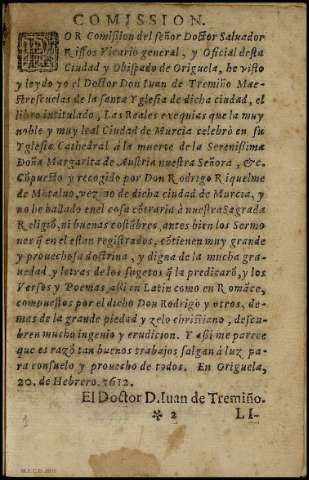 COMISSION.
POR Comissiondel señor Doctor Saluador
Rissos Vicario general, y Oficial desta
Ciudad y Obispado de Origuela, he visto
y leydo yo el Doctor Don Iuan de Tremiño Mae-
strescuelas de la santa Yglesia de dicha ciudad, el
libro intitulado, Las Reales exequias que la muy
noble y muy leal Ciudad de Murcia celebrò en su
Yglesia Cathedral à la muerte de la Serenissima
Doña Margarita de Austria nuestra Señora, &c.
Cõpuesto y recogido por Don Rodrigo Riquelme
de Mõtaluo, vezino de dicha ciudad de Murcia, y
no he hallado enel cosa cõtraria à nuestra Sagrada
Religiõ, ni buenas costũbres, antes bien los Sermo
nes q̃ en el estan registrados, cõtienen muy grande
y prouechosa doctrina, y digna de la mucha gra-
uedad y letras de los sugetos q̃ la predicarõ, y los
Versos y Poemas assi en Latin como en Romãce,
compuestos por el dicho Don Rodrigo y otros, de-
mas de la grande piedad y zelo christiano, descu-
bren mucho ingenio y erudicion. Y assi me parece
que es razõ tan buenos trabajos salgan à luz pa-
ra consuelo y prouecho de todos. En Origuela,
20. de Hebrero. 1612.
El Doctor D. Iuan de Tremiño.
* 2 LI-